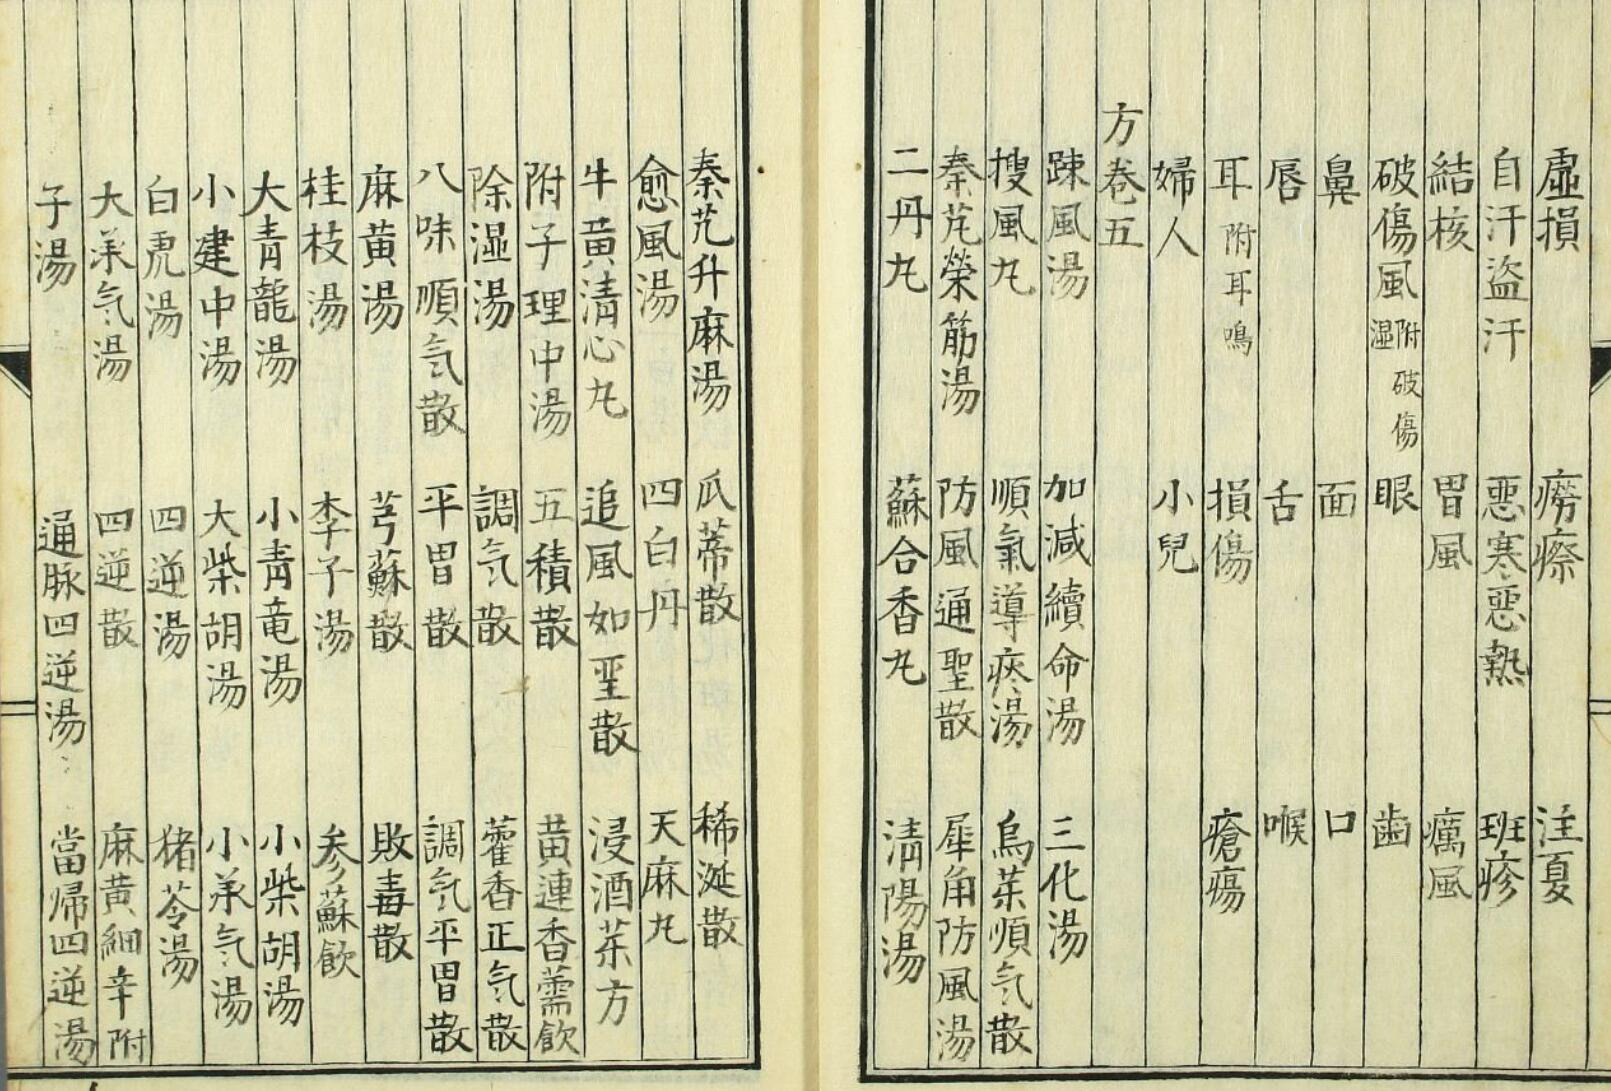 虛損 癆瘵 注夏
自汗盗汗 惡寒惡熱 班疹
結核 胃風 癘風
破傷風附破傷湿 眼 歯
鼻 面 口
唇 舌 喉
耳附耳鳴 損傷 瘡瘍
婦人 小兒
方卷五
踈風湯 加減續命湯 三化湯
搜風丸 順氣導痰湯 烏茱順气散
秦芃榮筋湯 防風通聖散 犀角防風湯
二丹丸 蘇合香丸 清陽湯
秦芃升麻湯 瓜蒂散 稀涎散
愈風湯 四白丹 天麻丸
牛黄清心丸 追風如聖散 浸酒茱方
附子理中湯 五積散 黄連香薷飲
除湿湯 調气散 藿香正气散
八味順气散 平胃散 調气平胃散
麻黄湯 芎蘇散 敗毒散
桂枝湯 李子湯 参蘇飲
大青龍湯 小青竜湯 小柴胡湯
小建中湯 大柴胡湯 小承气湯
白虎湯 四逆湯 猪苓湯
大承气湯 四逆散 麻黄細辛附
子湯 通脉四逆湯 當帰四逆湯